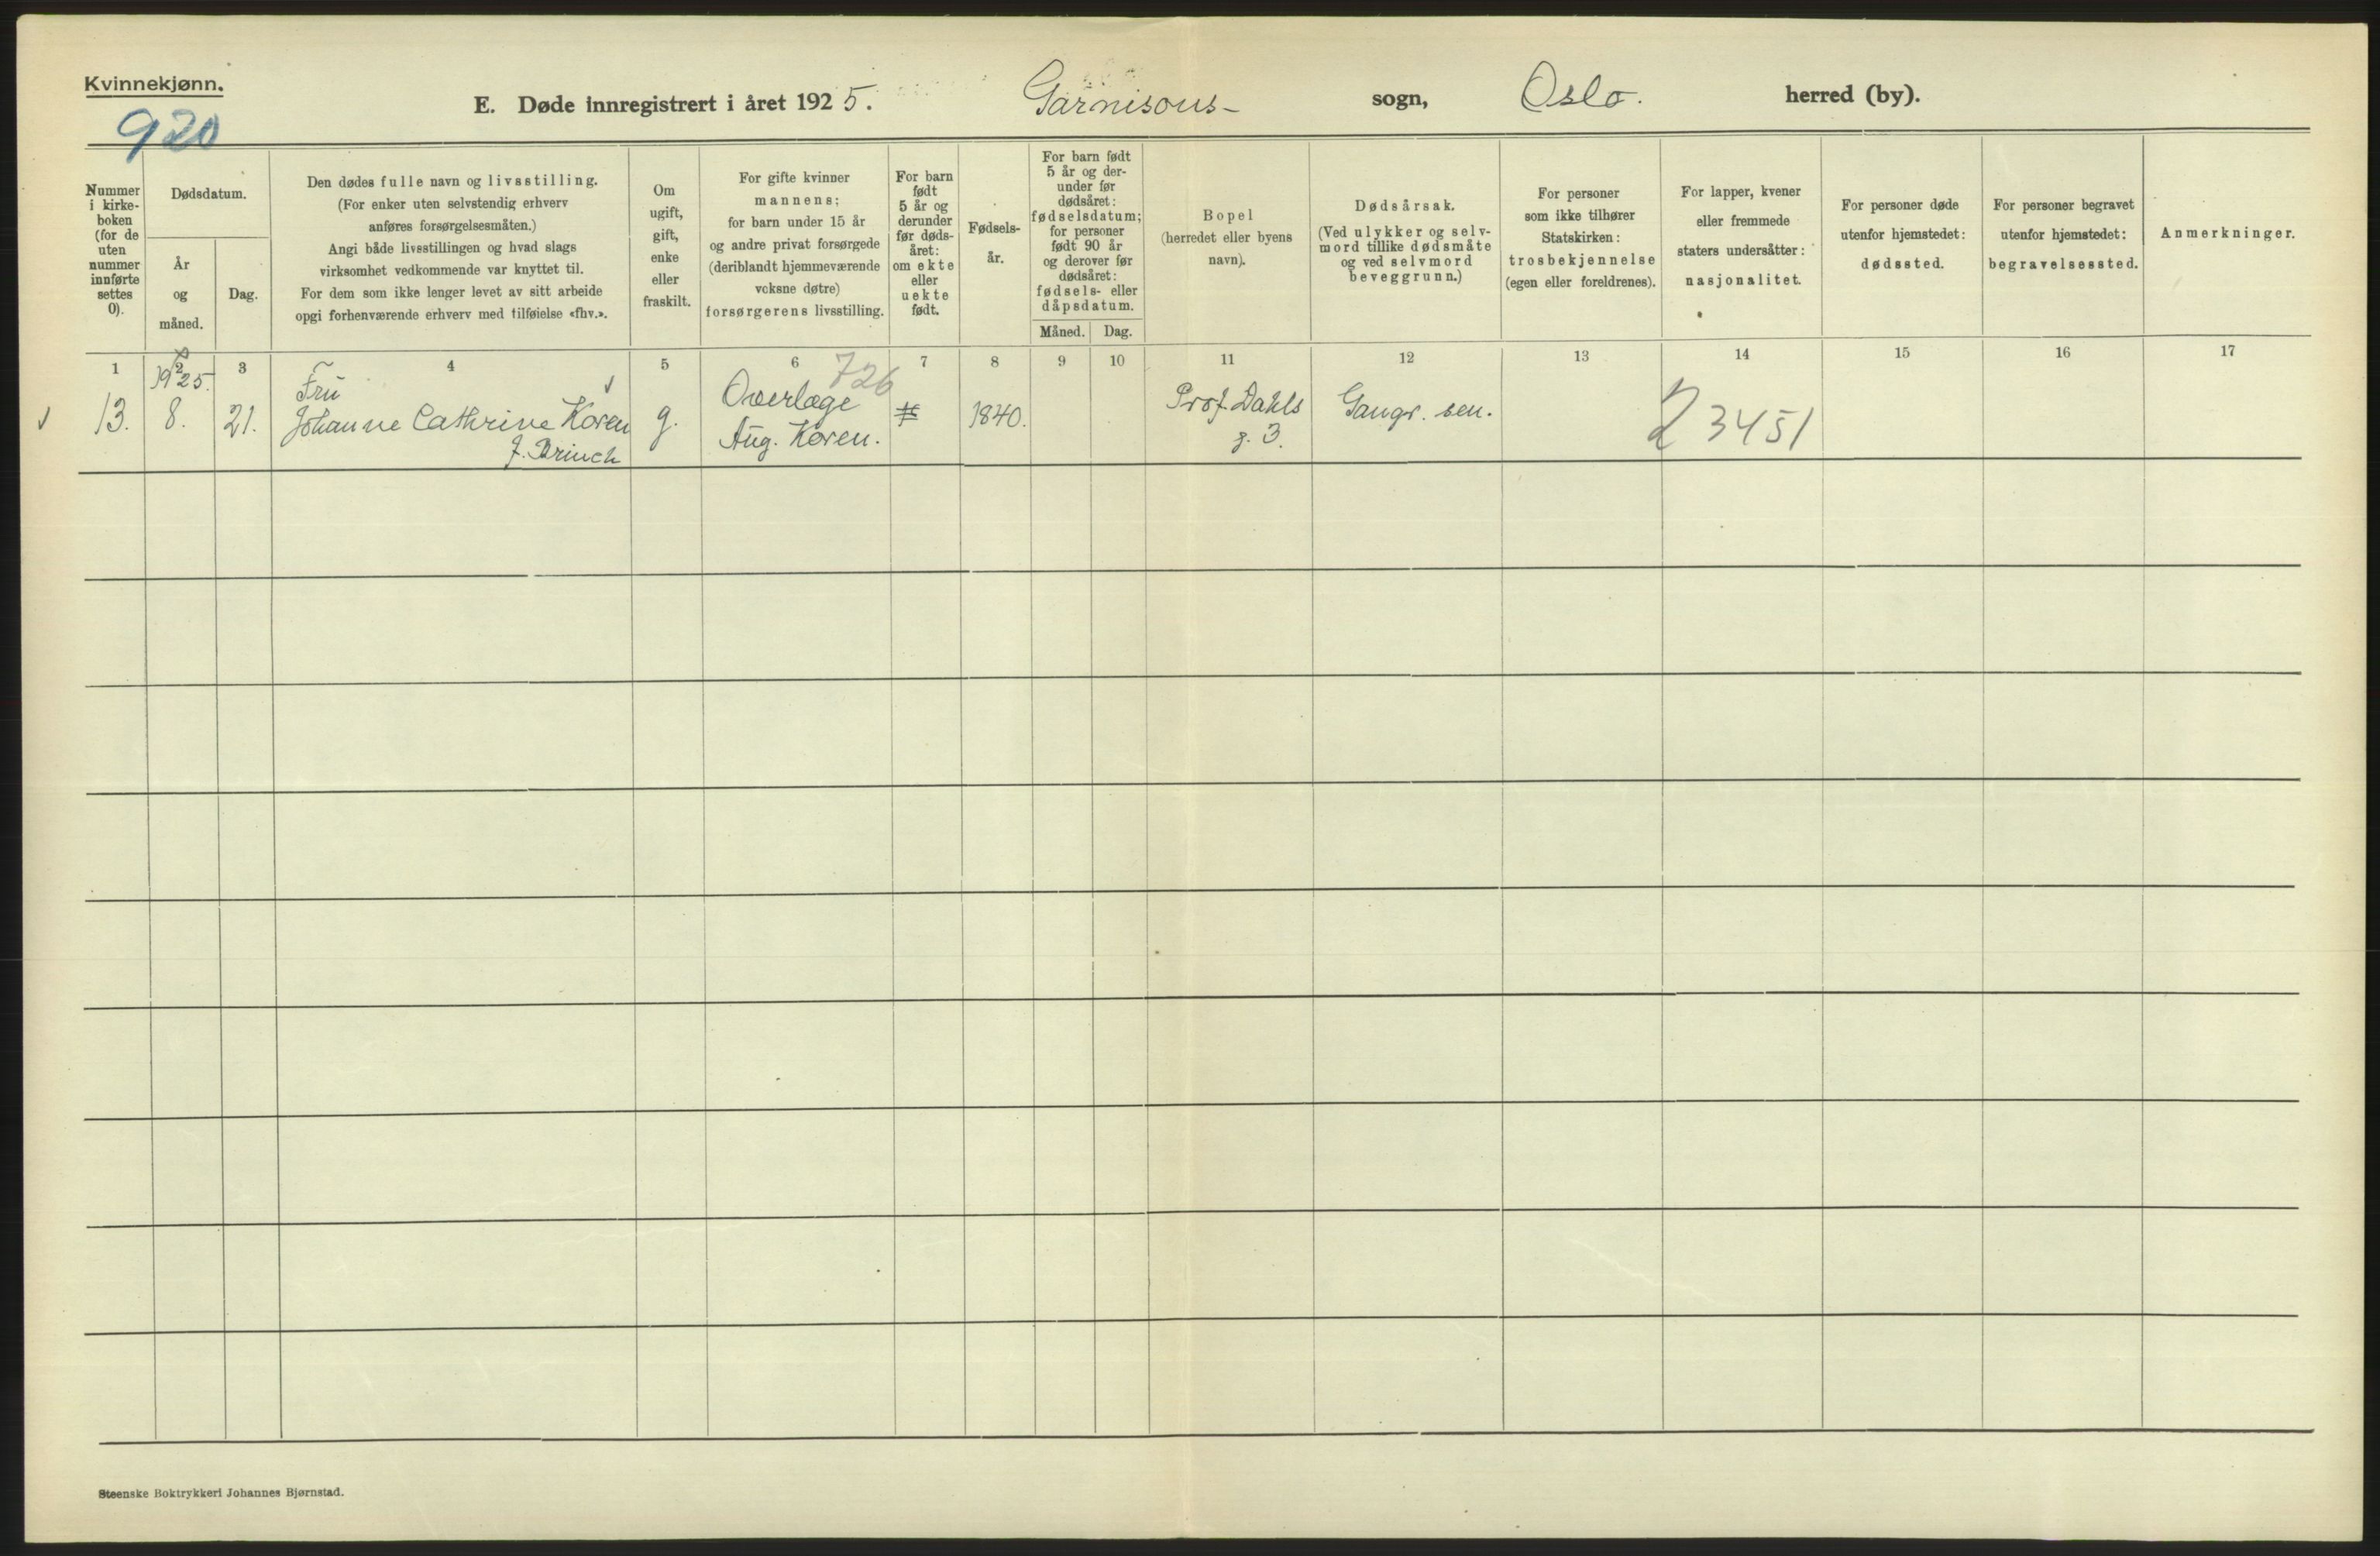 Kvinnekjønn.
920
E. Døde innregistrert i året 1925. Garnisons- sogn, Oslo. herred (by).
Nummer
i kirke-
boken
(for de
uten
nummer
innførte
settes
0).
Dødsdatum.
År
og
måned.
Dag.
Den dødes fulle navn og livsstilling.
(For enker uten selvstendig erhverv
anføres forsørgelsesmåten.)
Angi både livsstillingen og hvad slags
virksomhet vedkommende var knyttet til.
For dem som ikke lenger levet av sitt arbeide
opgi forhenværende erhverv med tilføielse «fhv.».
Om
ugift,
gift,
enke
eller
fraskilt.
For gifte kvinner
mannens;
for barn under 15 år
og andre privat forsørgede
(deriblandt hjemmeværende
voksne døtre)
forsørgerens livsstilling.
For barn
født
5 år og
derunder
før døds-
året:
om ekte
eller
uekte
født.
Fødsels-
år.
For barn født
5 år og der-
under før
dødsåret:
fødselsdatum;
for personer
født 90 år
og derover før
dødsåret:
fødsels- eller
dåpsdatum.
Måned. Dag.
Bopel
(herredet eller byens
navn).
Dødsårsak.
(Ved ulykker og selv-
mord tillike dødsmåte
og ved selvmord
beveggrunn.)
For personer
som ikke tilhører
Statskirken:
trosbekjennelse
(egen eller foreldrenes).
For lapper, kvener
eller fremmede
staters undersåtter:
nasjonalitet.
For personer døde
utenfor hjemstedet:
dødssted.
For personer begravet
utenfor hjemstedet:
begravelsessted.
Anmerkninger.
1 2 3 4 5 6 7 8 9 10 11 12 13 14 15 16 17
1925. Fru Overlæge 726 Prof. Dahls
13. 8. 21. Johanne Cathrine Koren g. Aug. Koren. 1840. g. 3. Gangr. sen. 23451
f. Brinch
Steenske Boktrykkeri Johannes Bjørnstad.